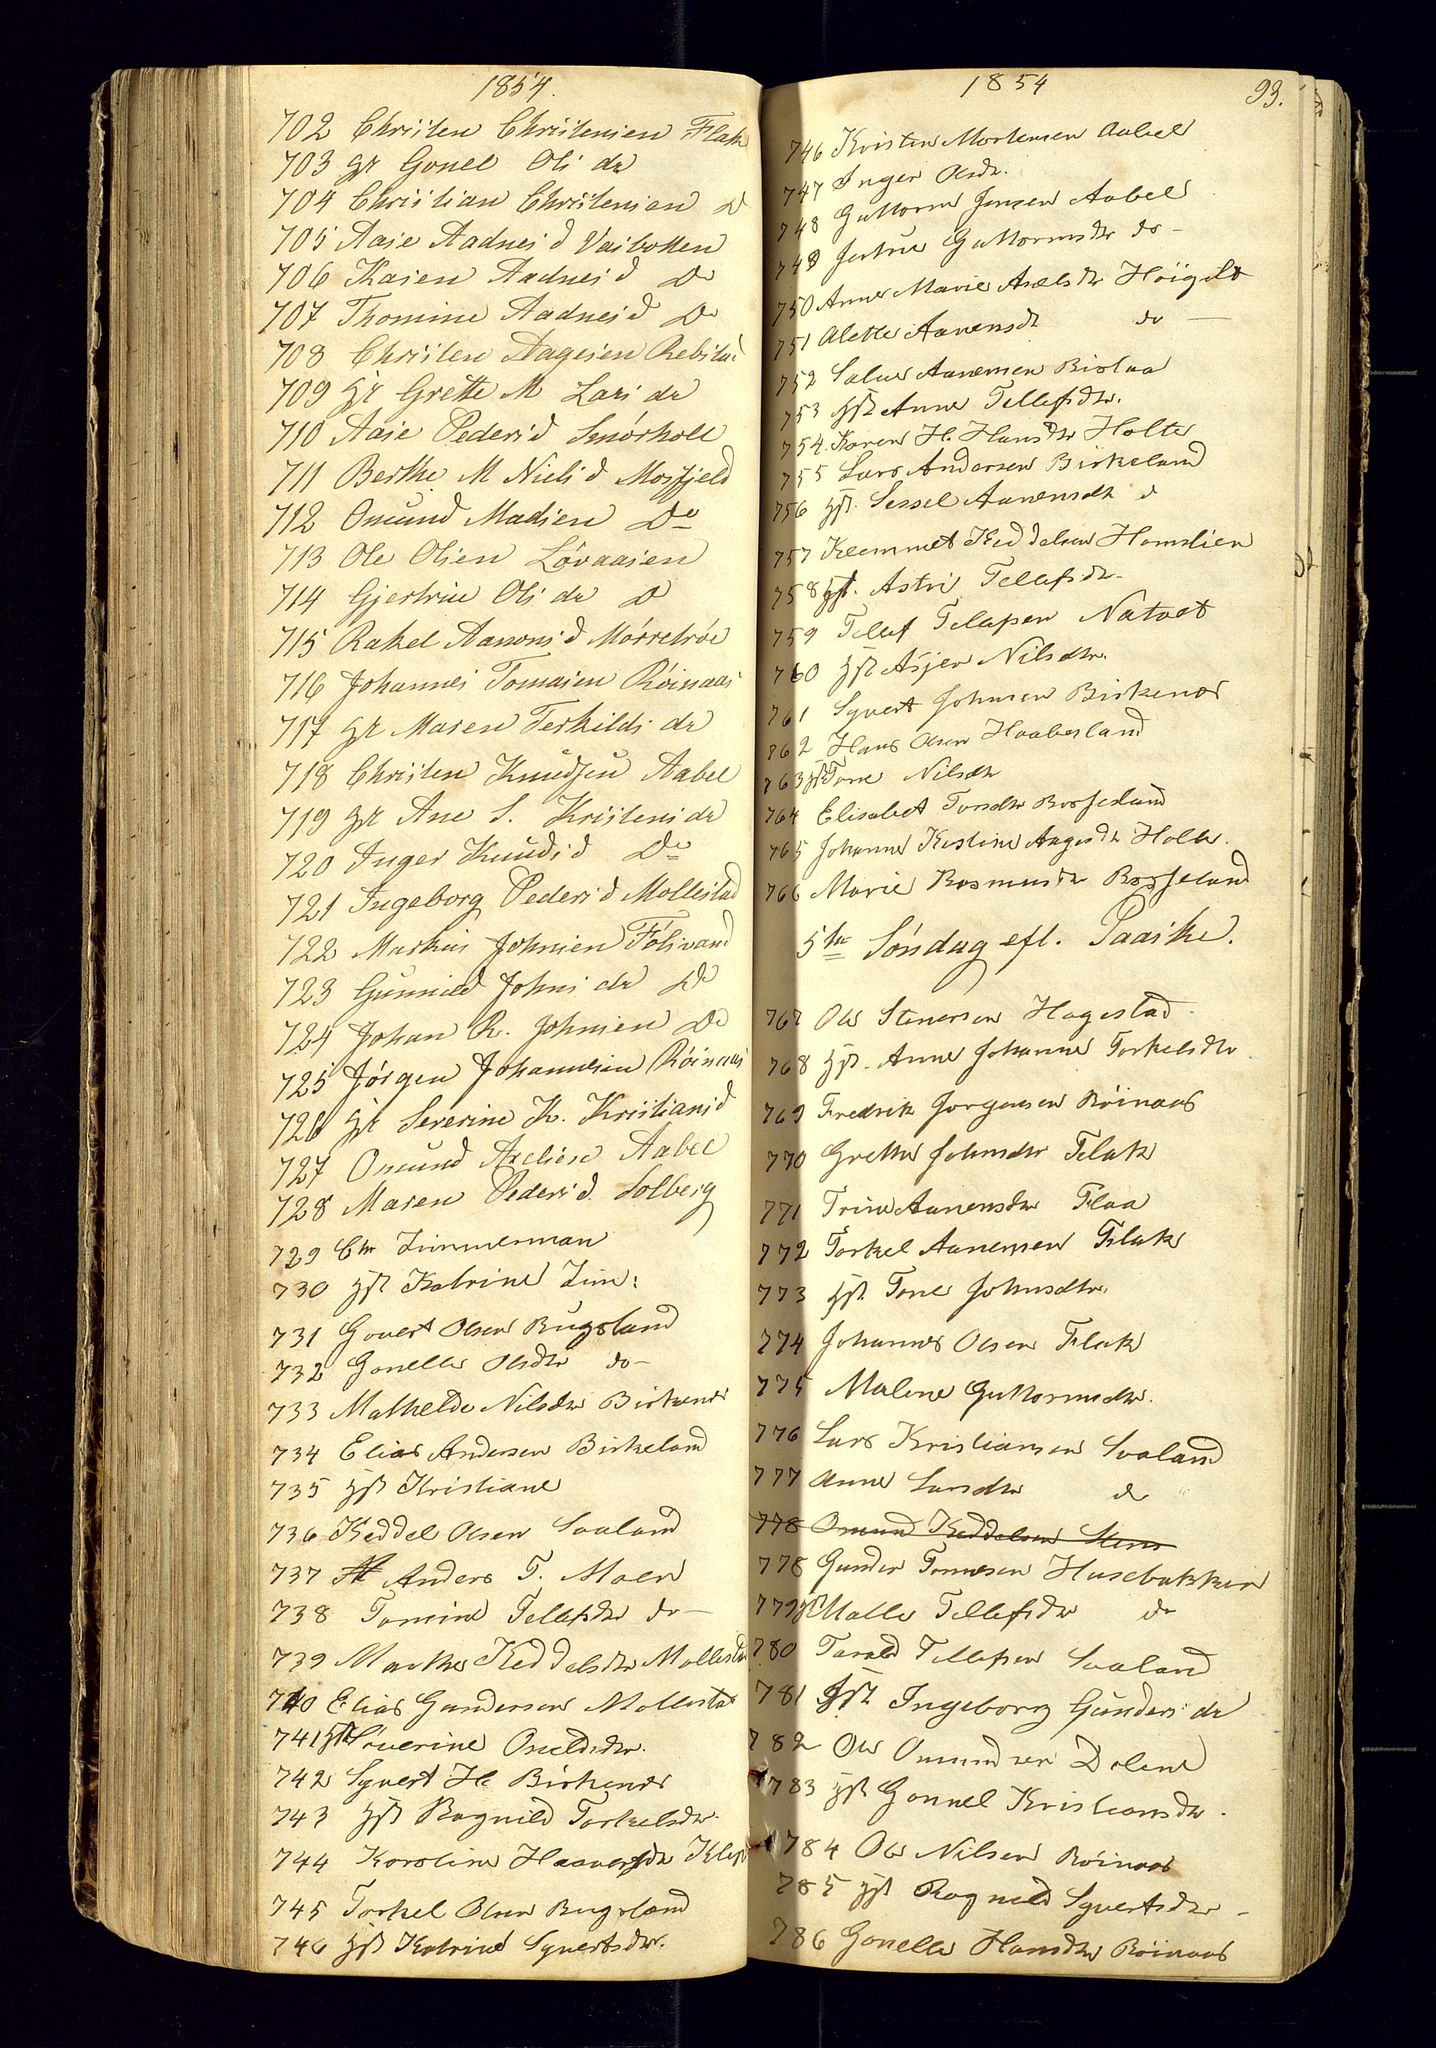 1854.
702 Christen Christensen Flak
703 hr Gonel Ols dr
704 Christian Christensen Do
705 Aase Aadnes d Vasbotten
706 Kasen Aadnes d Do
707 Thomine Aadnes d Do
708 Christen Aagesen Rebstad
709 hr Grethe M Lars dr
710 Aase Peders d Smörholl
711 Berthe M Niels d Mosfjeld
712 Omund Madsen Do
713 Ole Olsen Lövaasen
714 Gjertrue Ols dr Do
715 Rakel Aanons d Mörretröe
716 Johannes Tomasen Röinaas
717 hr Maren Terkilds dr
718 Christen Knudsen Aabel
719 hr Ane S. Kristens dr
720 Inger Knuds d Do
721 Ingeborg Peders d Mollestad
722 Markus Johnsen Fölivand
723 Gunnild Johns dr Do
724 Johan R. Johnsen Do
725 Jörgen Johannesen Röinaas
726 hr Severine K. Kristians d
727 Omund Axelsen Aabel
728 Maren Peders d Solberg
729 Chr Zimmerman
730 hst Katrine Zim:
731 Govert Olsen Bugsland
732 Gonelle Olsdtr do –
733 Mathelde Nilsdtr Birkenes
734 Elias Andersen Birkeland
735 hst Kristiane
736 Keddel Olsen Svaland
737 Anders T. Moen
738 Tomine Tellefsdtr do –
739 Marthe Keddelsdtr Mollestad
740 Elias Gundersen Mollestad
741 hst Severine Osuldsdtr.
742 Syvert H. Birkenes
743 hst Ragnild Torkelsdtr.
744 Karoline Haaversdtr Klep
745 Torkel Olsen Bugsland
746 hst Katrine Syvertsdtr.
1854 93.
746 Kristen Mortensen Aabel
747 Inger Olsdtr.
748 Guttorm Jensen Aabel
749 Jertrue Guttormsdtr do –
750 Anne Marie Axelsdtr Höigilt
751 Alette Aanensdtr do –
752 Salve Aanensen Birlaa
753 hst Anne Tellefsdtr.
754. Karen H. Hansdtr Holte
755 Lars Andersen Birkeland
756 hst. Sessel Aanensdtr d
757 Klemmet Keddelsen Homslien
758 hst. Astri Tellefsdtr.
759 Tellef Tellefsen Natvet
760 hst Asjer Nilsdtr.
761 Syvert Johnsen Birkenes
762 Hans Olsen Haabesland
763 hst Tone Nilsdtr
764 Elisabet Torsdtr Bosseland
765 Johanne Kirstine Aagesdtr Holte.
766 Marie Rasmusdtr Bosseland
5te Söndag eft. Paaske.
767 Ole Stenersen Hagestad.
768 hst. Anne Johanne Torkelsdtr
769 Fredrik Jorgensen Röinaas
770 Grethe Johnsdtr Flak
771 Trine Aanensdtr Flaa
772 Torkel Aanensen Flak
773 hst Tone Johnsdtr.
774 Johannes Olsen Flak
775 Malene Guttormsdtr.
776 Lars Kristiansen Svaland
777 Anne Larsdtr do
778 Omund Keddelsen Stens
778 Gunder Tomesen Husebakken
779 hst Malle Tellefsdtr do
780 Tarald Tellefsen Svaland
781 hst Ingeborg Gunders dr
782 Ole Omundsen Dolene
783 hst Gonnel Kristiansdtr.
784 Ole Nilsen Röinaas
785 hst Ragnild Syvertsdtr –
786 Gonelle Hansdtr Röinaas